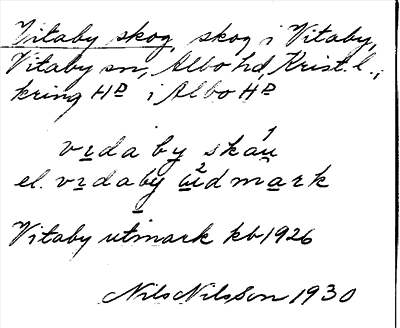 Vitaby skog, skog i Vitaby,
Vitaby sn, Albo hd, Krist. l.,
kring HP i Albo HP
vṛda by skáu
el. vṛdaby ùdmark
Vitaby utmark kb 1926
Nils Nilsson 1930